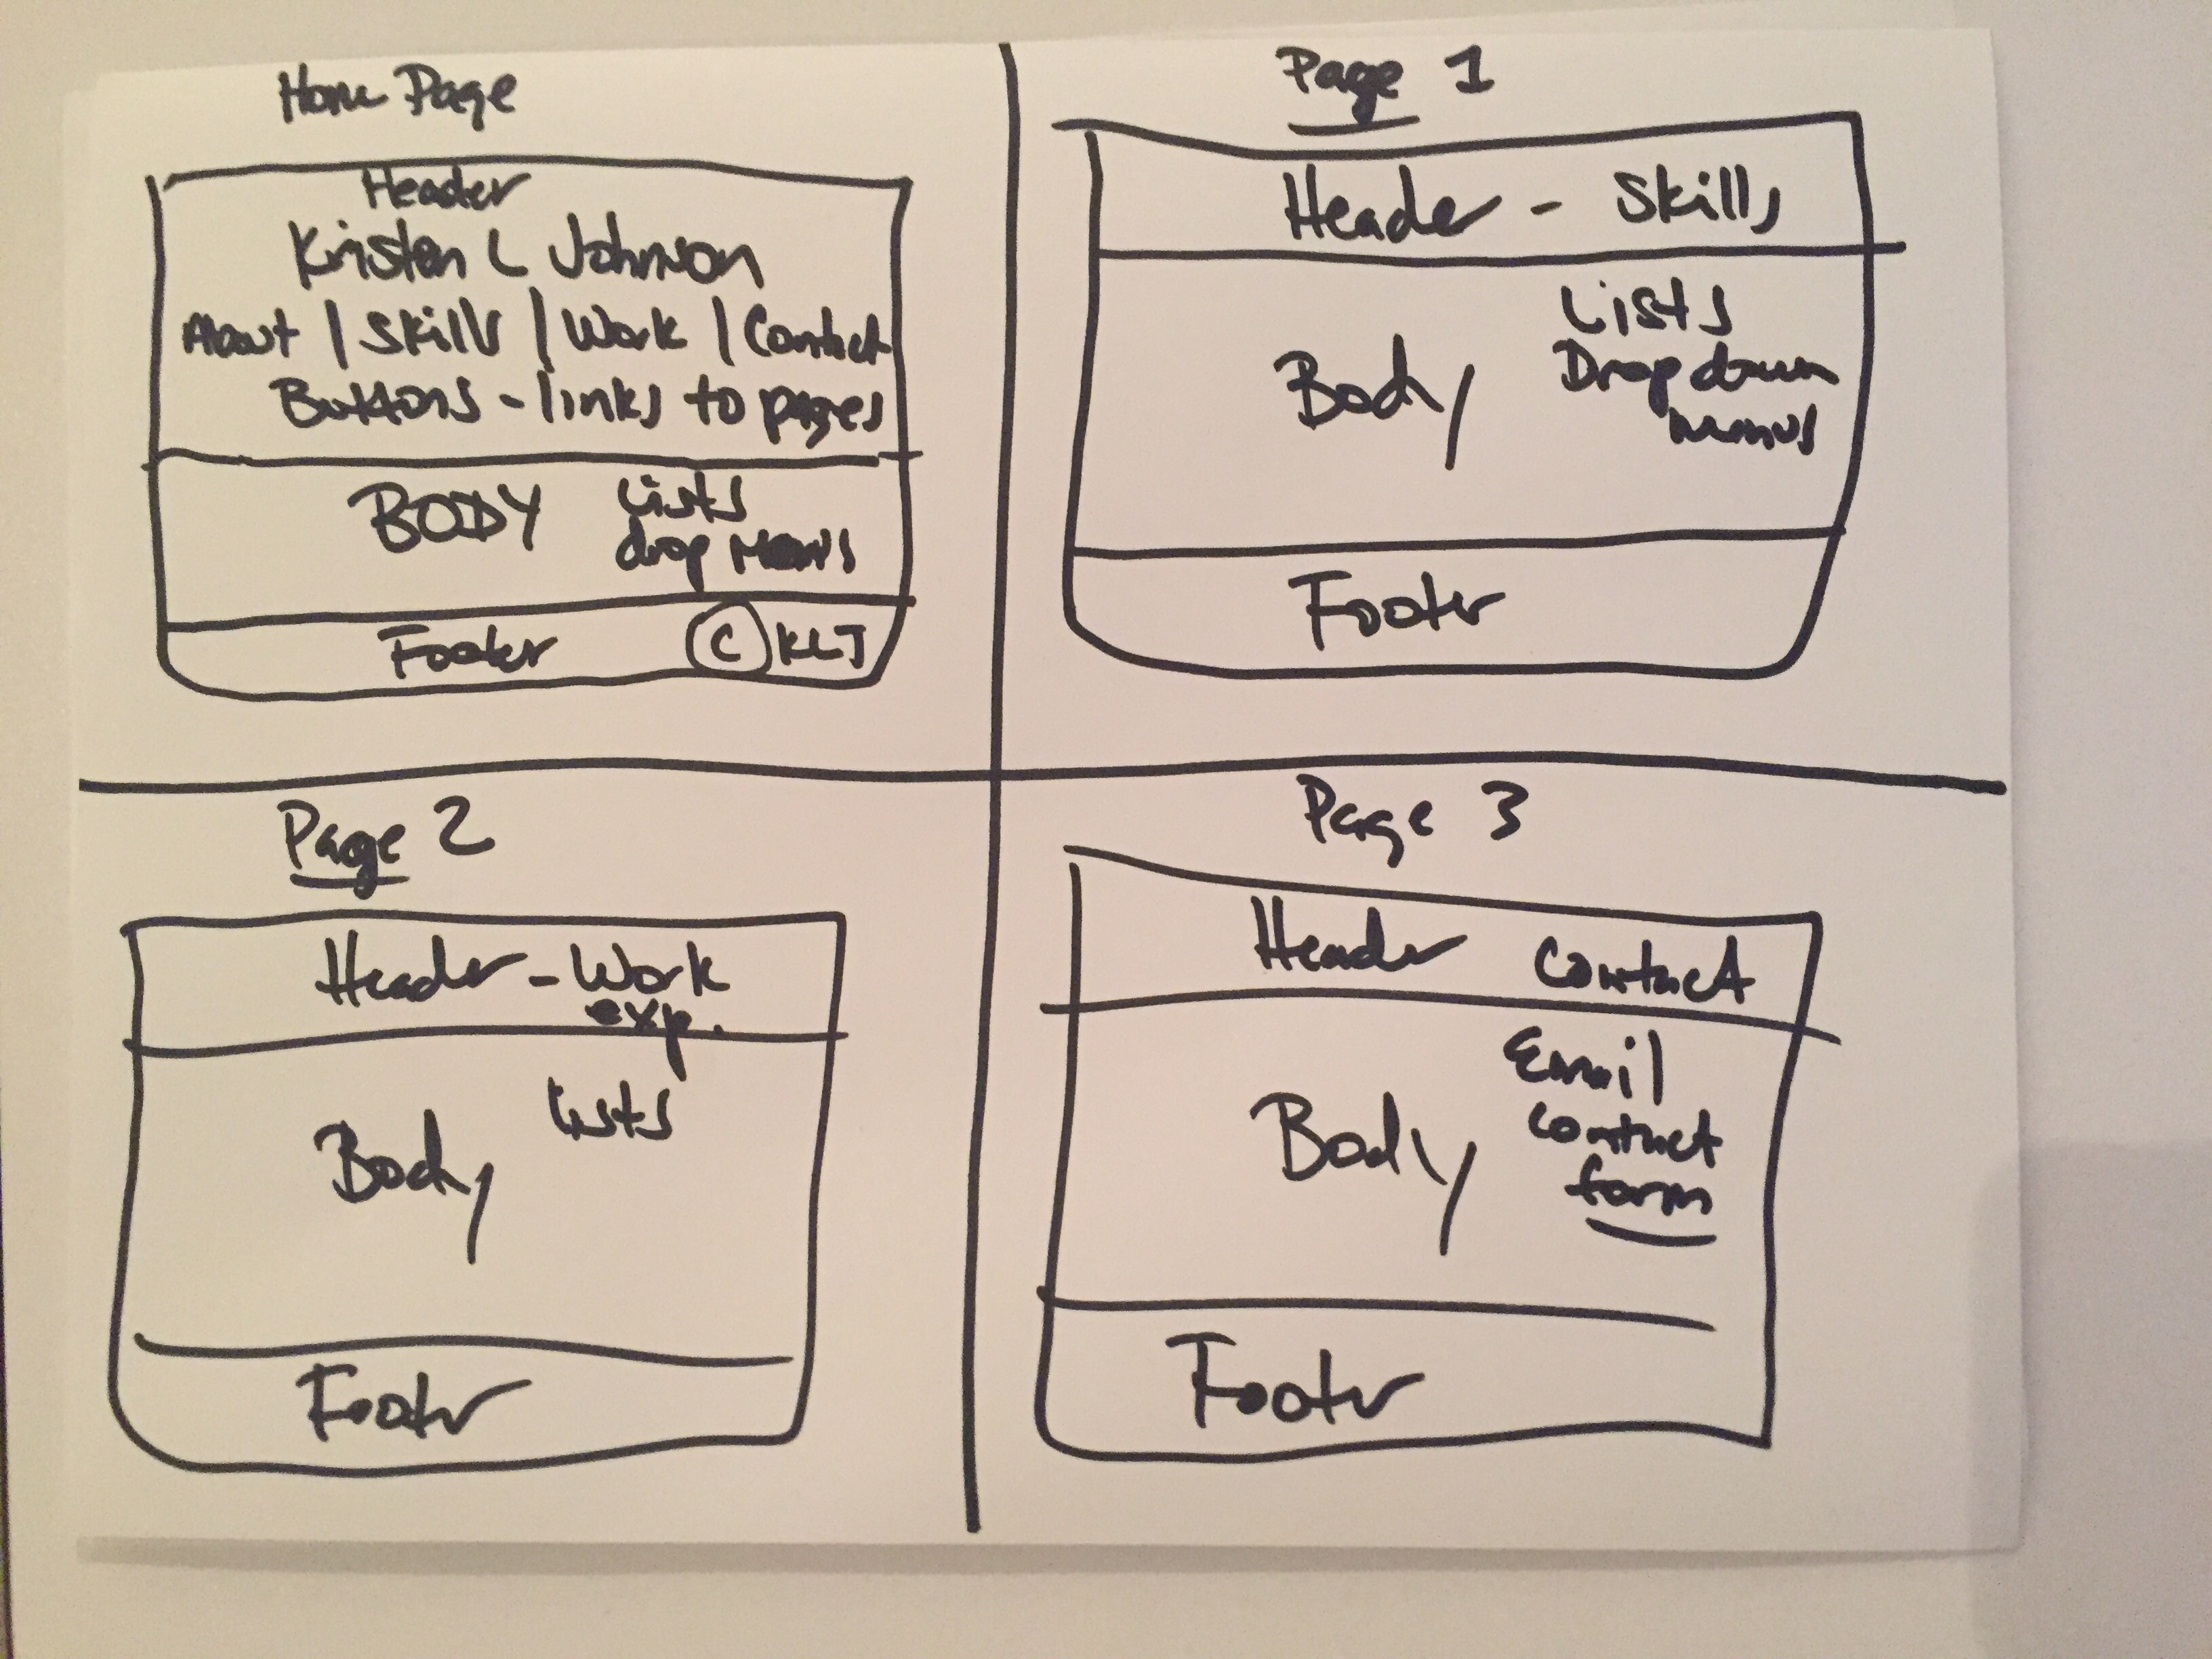 Home Page
Header
Kristen L Johnson
About | Skills | Work | Contact
Buttons - links to pages
BODY
Lists
drop Menus
Footer © KLJ
Page 1
Header - Skills
Body
Lists
Drop down
menus
Footer
Page 2
Header - Work
exp.
Lists
Body
Footer
Page 3
Header Contact
Body
Email
contact
form
Footer